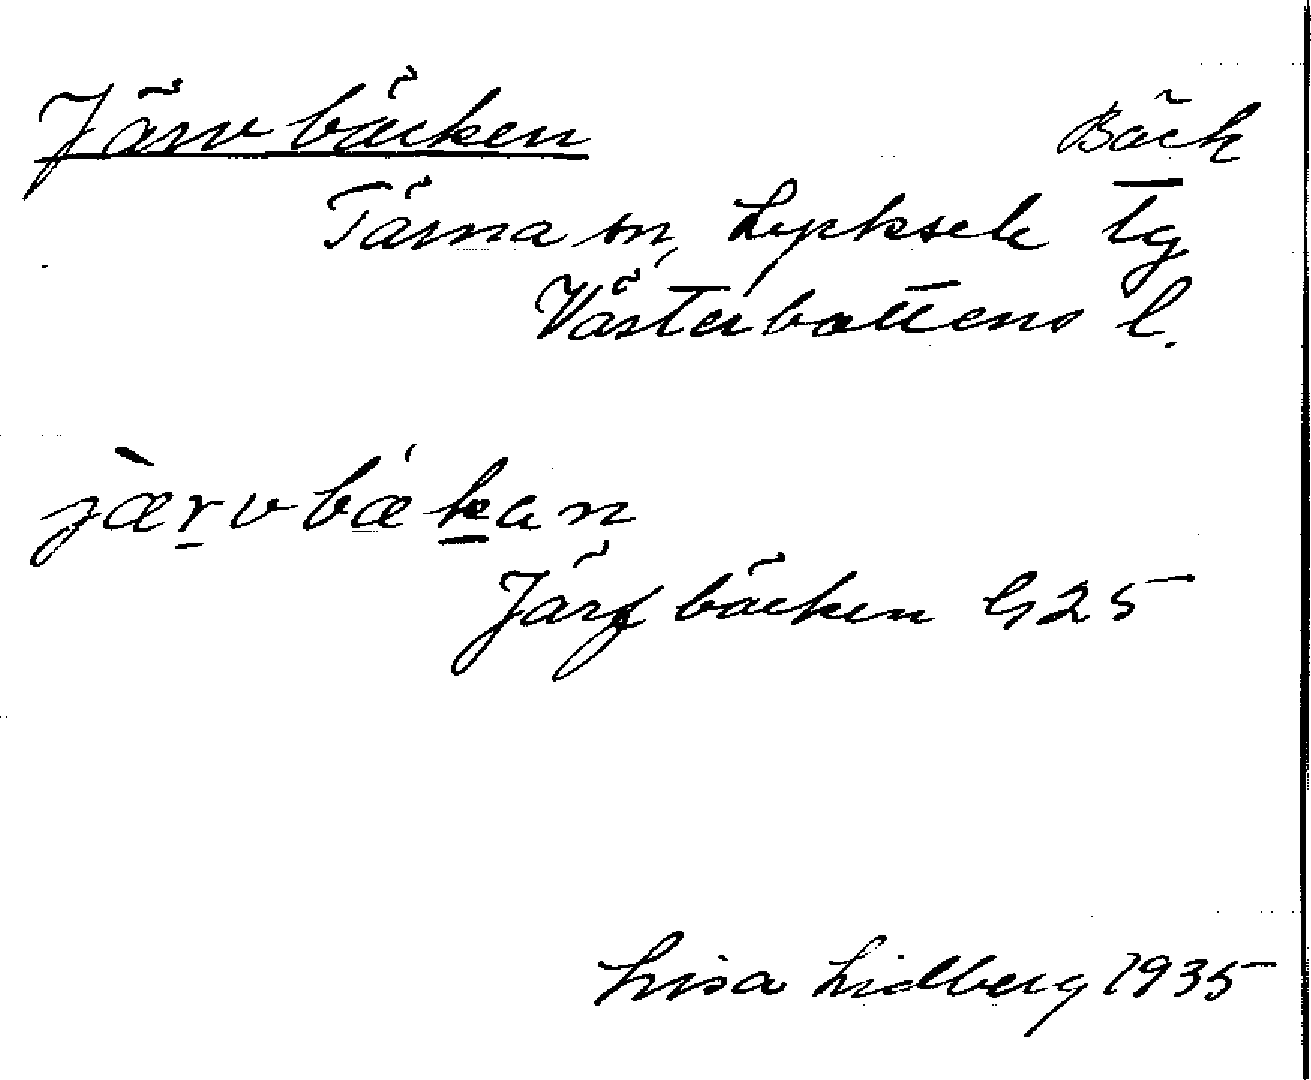 Järvbäcken Bäck
Tärna sn, Lycksele Tg
Västerbottens l.
jær̲vbæk̲an
Järfbäcken G25
Lisa Lidberg 1935